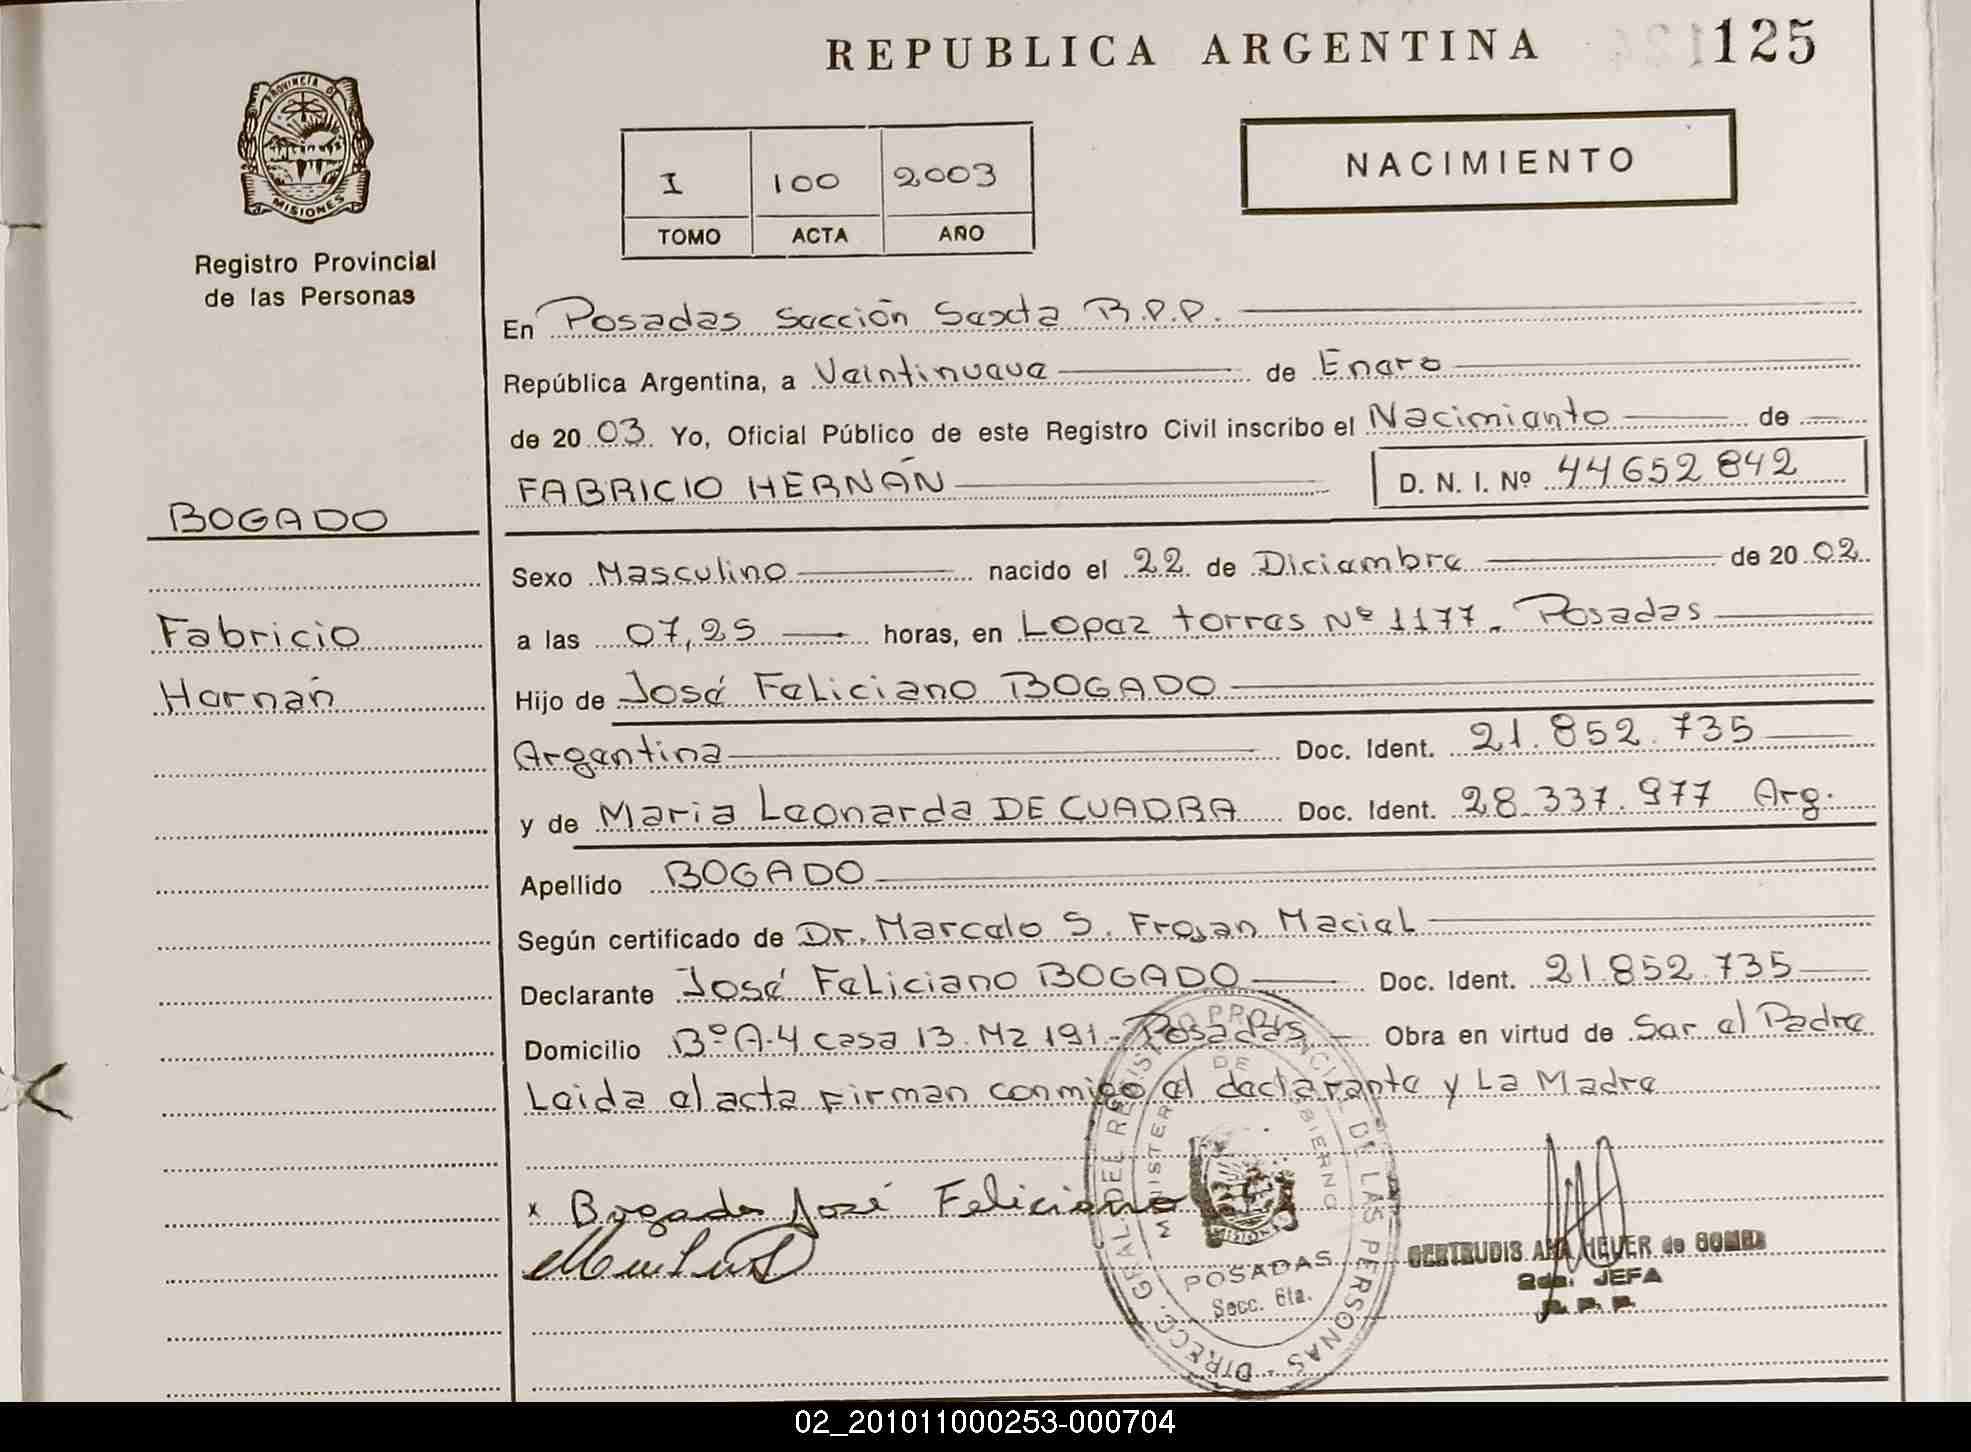 REPUBLICA ARGENTINA 125
PROVINCIA DE MISIONES
Registro Provincial
de las Personas
I 100 2003
TOMO ACTA AÑO
NACIMIENTO
En Posadas Sección Sexta R.P.P.
República Argentina, a Veintinueve de Enero
de 2003. Yo, Oficial Público de este Registro Civil inscribo el Nacimiento de
FABRICIO HERNÁN D. N. I. Nº 44652842
BOGADO
Fabricio
Hernán
Sexo Masculino nacido el 22 de Diciembre de 2002
a las 07,25 horas, en Lopez torres Nº 1177. Posadas
Hijo de José Feliciano BOGADO
Argentina Doc. Ident. 21.852.735
y de Maria Leonarda DE CUADRA Doc. Ident. 28.337.977 Arg.
Apellido BOGADO
Según certificado de Dr. Marcelo S. Frojan Maciel
Declarante José Feliciano BOGADO Doc. Ident. 21.852.735
Domicilio Bº A-4 casa 13. Mz 191- Posadas Obra en virtud de Ser el Padre
Leida el acta firman conmigo el declarante y La Madre
x Bogado José Feliciano
DIRECC. GRAL. DEL REGISTRO PROVINCIAL DE LAS PERSONAS
MINISTERIO DE GOBIERNO
MISIONES
POSADAS
Secc. 6ta.
GERTRUDIS ANA HEUER de
2da. JEFA
R. P. P.
02_201011000253-000704